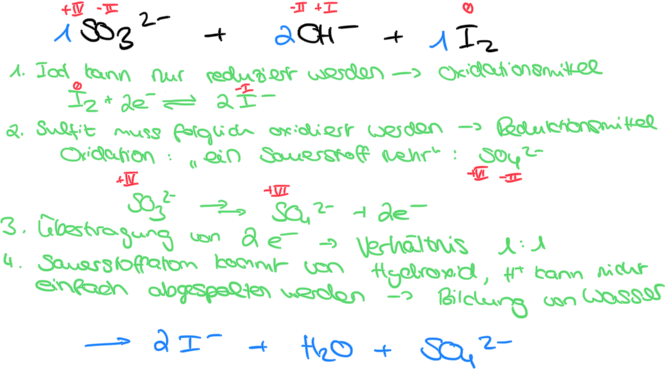 +IV -II -II +I 0
1 SO₃²⁻ + 2OH⁻ + 1 I₂
1. Iod kann nur reduziert werden → Oxidationsmittel
0 -I
I₂ + 2e⁻ ⇌ 2 I⁻
2. Sulfit muss folglich oxidiert werden → Reduktionsmittel
Oxidation: „ein Sauerstoff mehr": SO₄²⁻
+IV +VI +VI -II
SO₃²⁻ → SO₄²⁻ + 2e⁻
3. Übertragung von 2 e⁻ → Verhältnis 1:1
4. Sauerstoffatom kommt von Hydroxid, H⁺ kann nicht
einfach abgespalten werden → Bildung von Wasser
→ 2 I⁻ + H₂O + SO₄²⁻